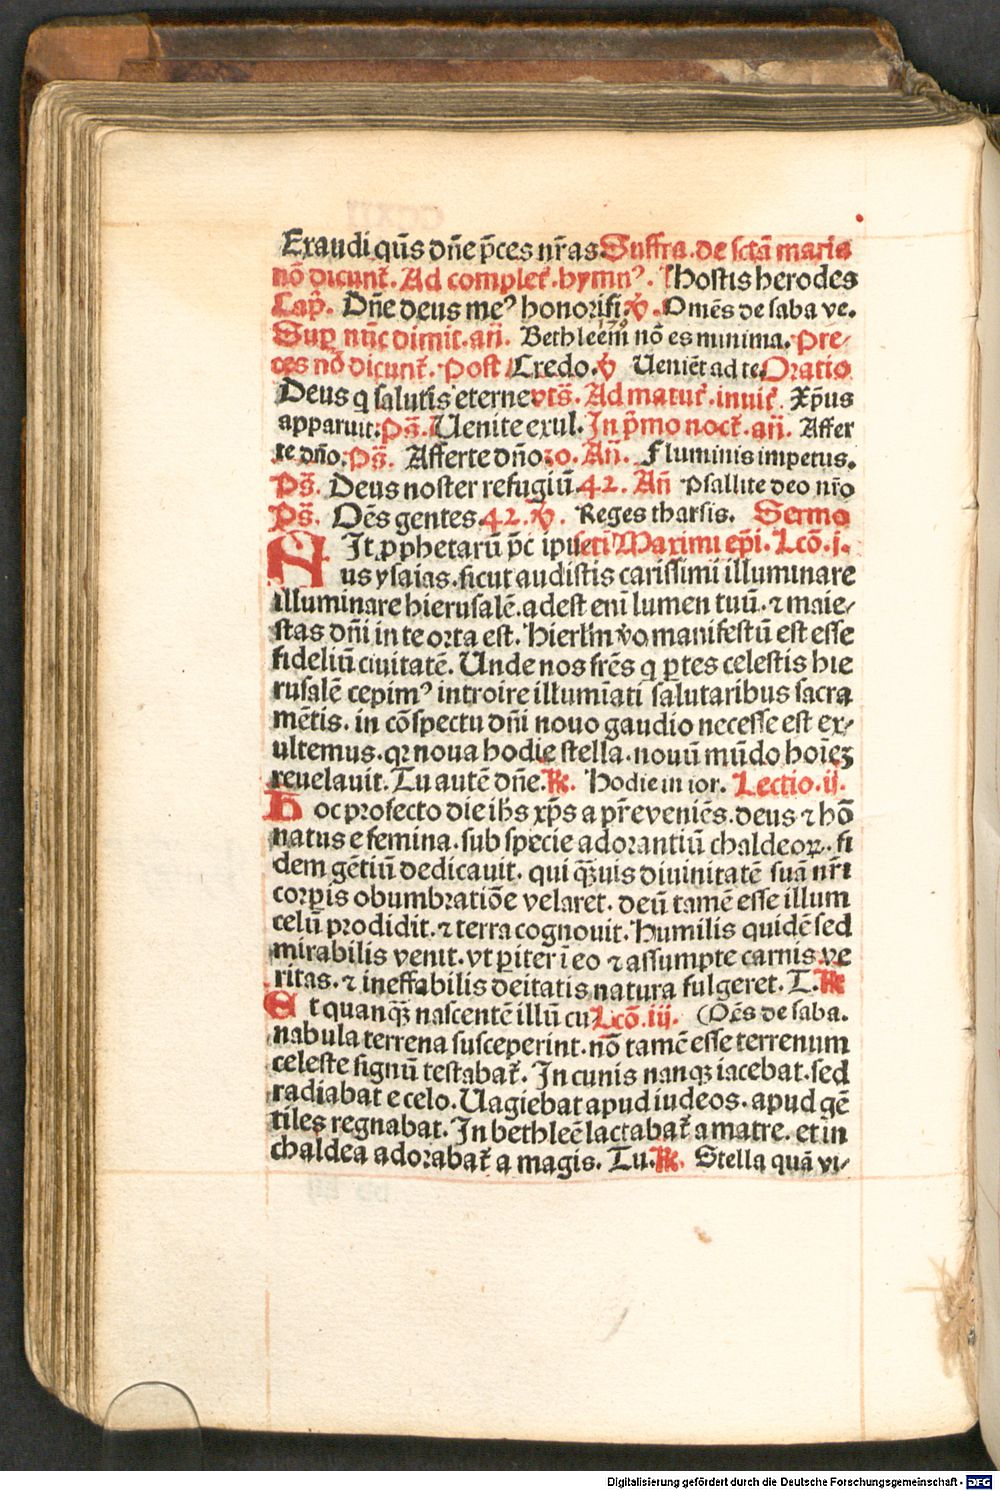 Exaudi q̄us dn̄e p̄ces nr̄as Suffra. de sctā maria
nō dicunt̄. Ad complet̄. hymnꝰ. Hostis herodes
Cap̄. Dn̄e deus meꝰ honorifi. ꝟ. Omēs de saba ve.
Suꝑ nūc dimit. añ. Bethleem̄ nō es minima. Pre-
ces nō dicunt̄. Post Credo. ꝟ Ueniēt ad te. Oratio
Deus q salutis eterne vts̄. Ad matut̄. inuit̄. Xp̄us
apparuit: Ps̄. Uenite exul. In p̄mo noct̄. añ. Affer
te dn̄o: Ps̄. Afferte dn̄o: Añ. Fluminis impetus.
Ps̄. Deus noster refugiū. 42. Añ Psallite deo nr̄o
Ps̄. Oēs gentes. 42. ꝟ. Reges tharsis. Sermo
SIt ꝓphetarū p̄c ipu scti Maximi ep̄i. Lcō. j.
us ysaias. sicut audistis carissimi illuminare
illuminare hierusalē. adest eni lumen tuū. ⁊ maie-
stas dn̄i in te orta est. Hierlm̄ vo manifestū est esse
fidelíū ciuitatē. Unde nos frēs q ꝑtes celestis hie
rusalē cepimꝰ introire illumiati salutaribus sacra
mētis. in cōspectu dn̄i nouo gaudio necesse est ex-
ultemus. qꝛ noua hodie stella. nouū mūdo hoīeꝫ
reuelauit. Tu autē dn̄e. ℟. Hodie in ior. Lectio. ij.
Hoc profecto die ihs xp̄s a pr̄e veniēs. deus ⁊ hō
natus e femina. sub specie adorantiū chaldeoꝝ. fi
dem gētiū dedicauit. qui q̄uis diuinitatē suā nr̄i
corꝑis obumbratiōe velaret. deū tamē esse illum
celū prodidit. ⁊ terra cognouit. Humilis quidē sed
mirabilis venit. vt ꝑiter ī eo ⁊ assumpte carnis ve
ritas. ⁊ ineffabilis deitatis natura fulgeret. T. ℟
Et quanqꝫ nascentē illū cu Lcō. iij. (Oēs de saba.
nabula terrena susceperint. nō tamē esse terrenum
celeste signū testabat̄. In cunis nanqꝫ iacebat. sed
radiabat e celo. Uagiebat apud iudeos. apud gē
tiles regnabat. In bethleē lactabat̄ a matre. et in
chaldea adorabat̄ a magis. Tu. ℟. Stella quā vi-
Digitalisierung gefördert durch die Deutsche Forschungsgemeinschaft - DFG